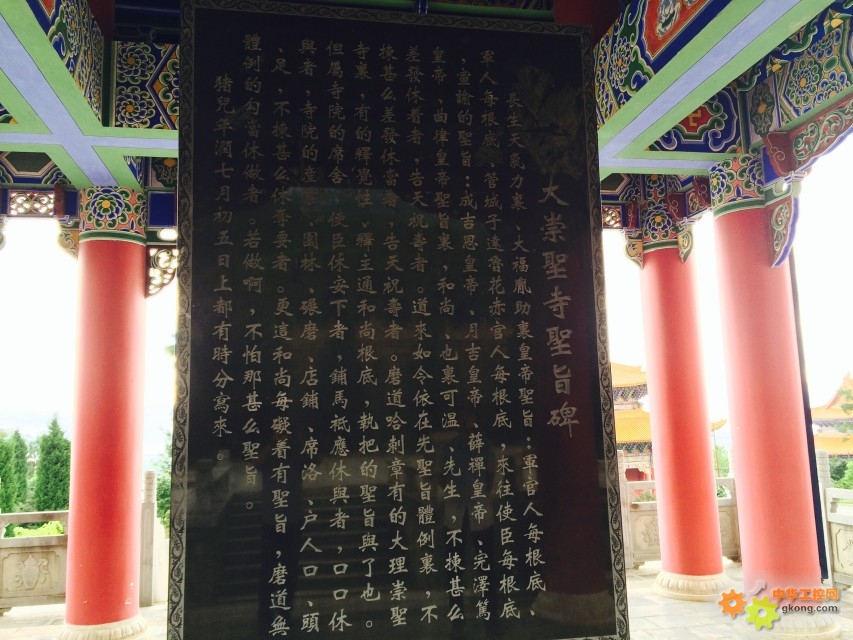 大崇聖寺聖旨碑
長生天氣力裏、大福胤助裏皇帝聖旨:軍官人每根底、
軍人每根底、管城子達魯花赤官人每根底、來往使臣每根底
,宣諭的聖旨:成吉思皇帝、月吉皇帝、薛禪皇帝、完澤篤
皇帝、曲律皇帝聖旨裏,和尚、也裏可溫、先生,不揀甚么
差發休着者,告天祝壽者。道來如今依在先聖旨體例裏,不
揀甚么差發休當者,告天祝壽者。磨道哈剌章有的大理崇聖
寺裏,有的釋覺性、釋主通和尚根底,執把的聖旨與了也。
但屬寺院的席舍,使臣休安下者,鋪馬祗應休與者,口口休
與者,寺院的產業、園林、碾磨、店鋪、席洛、户人口、頭
足,不揀甚么休奪要者。更這和尚每礙着有聖旨,磨道無
體例的勾當休做者,若做啊,不怕那甚么聖旨。
猪兒年潤七月初五日上都有時分寫來。
中华工控网
gkong.com